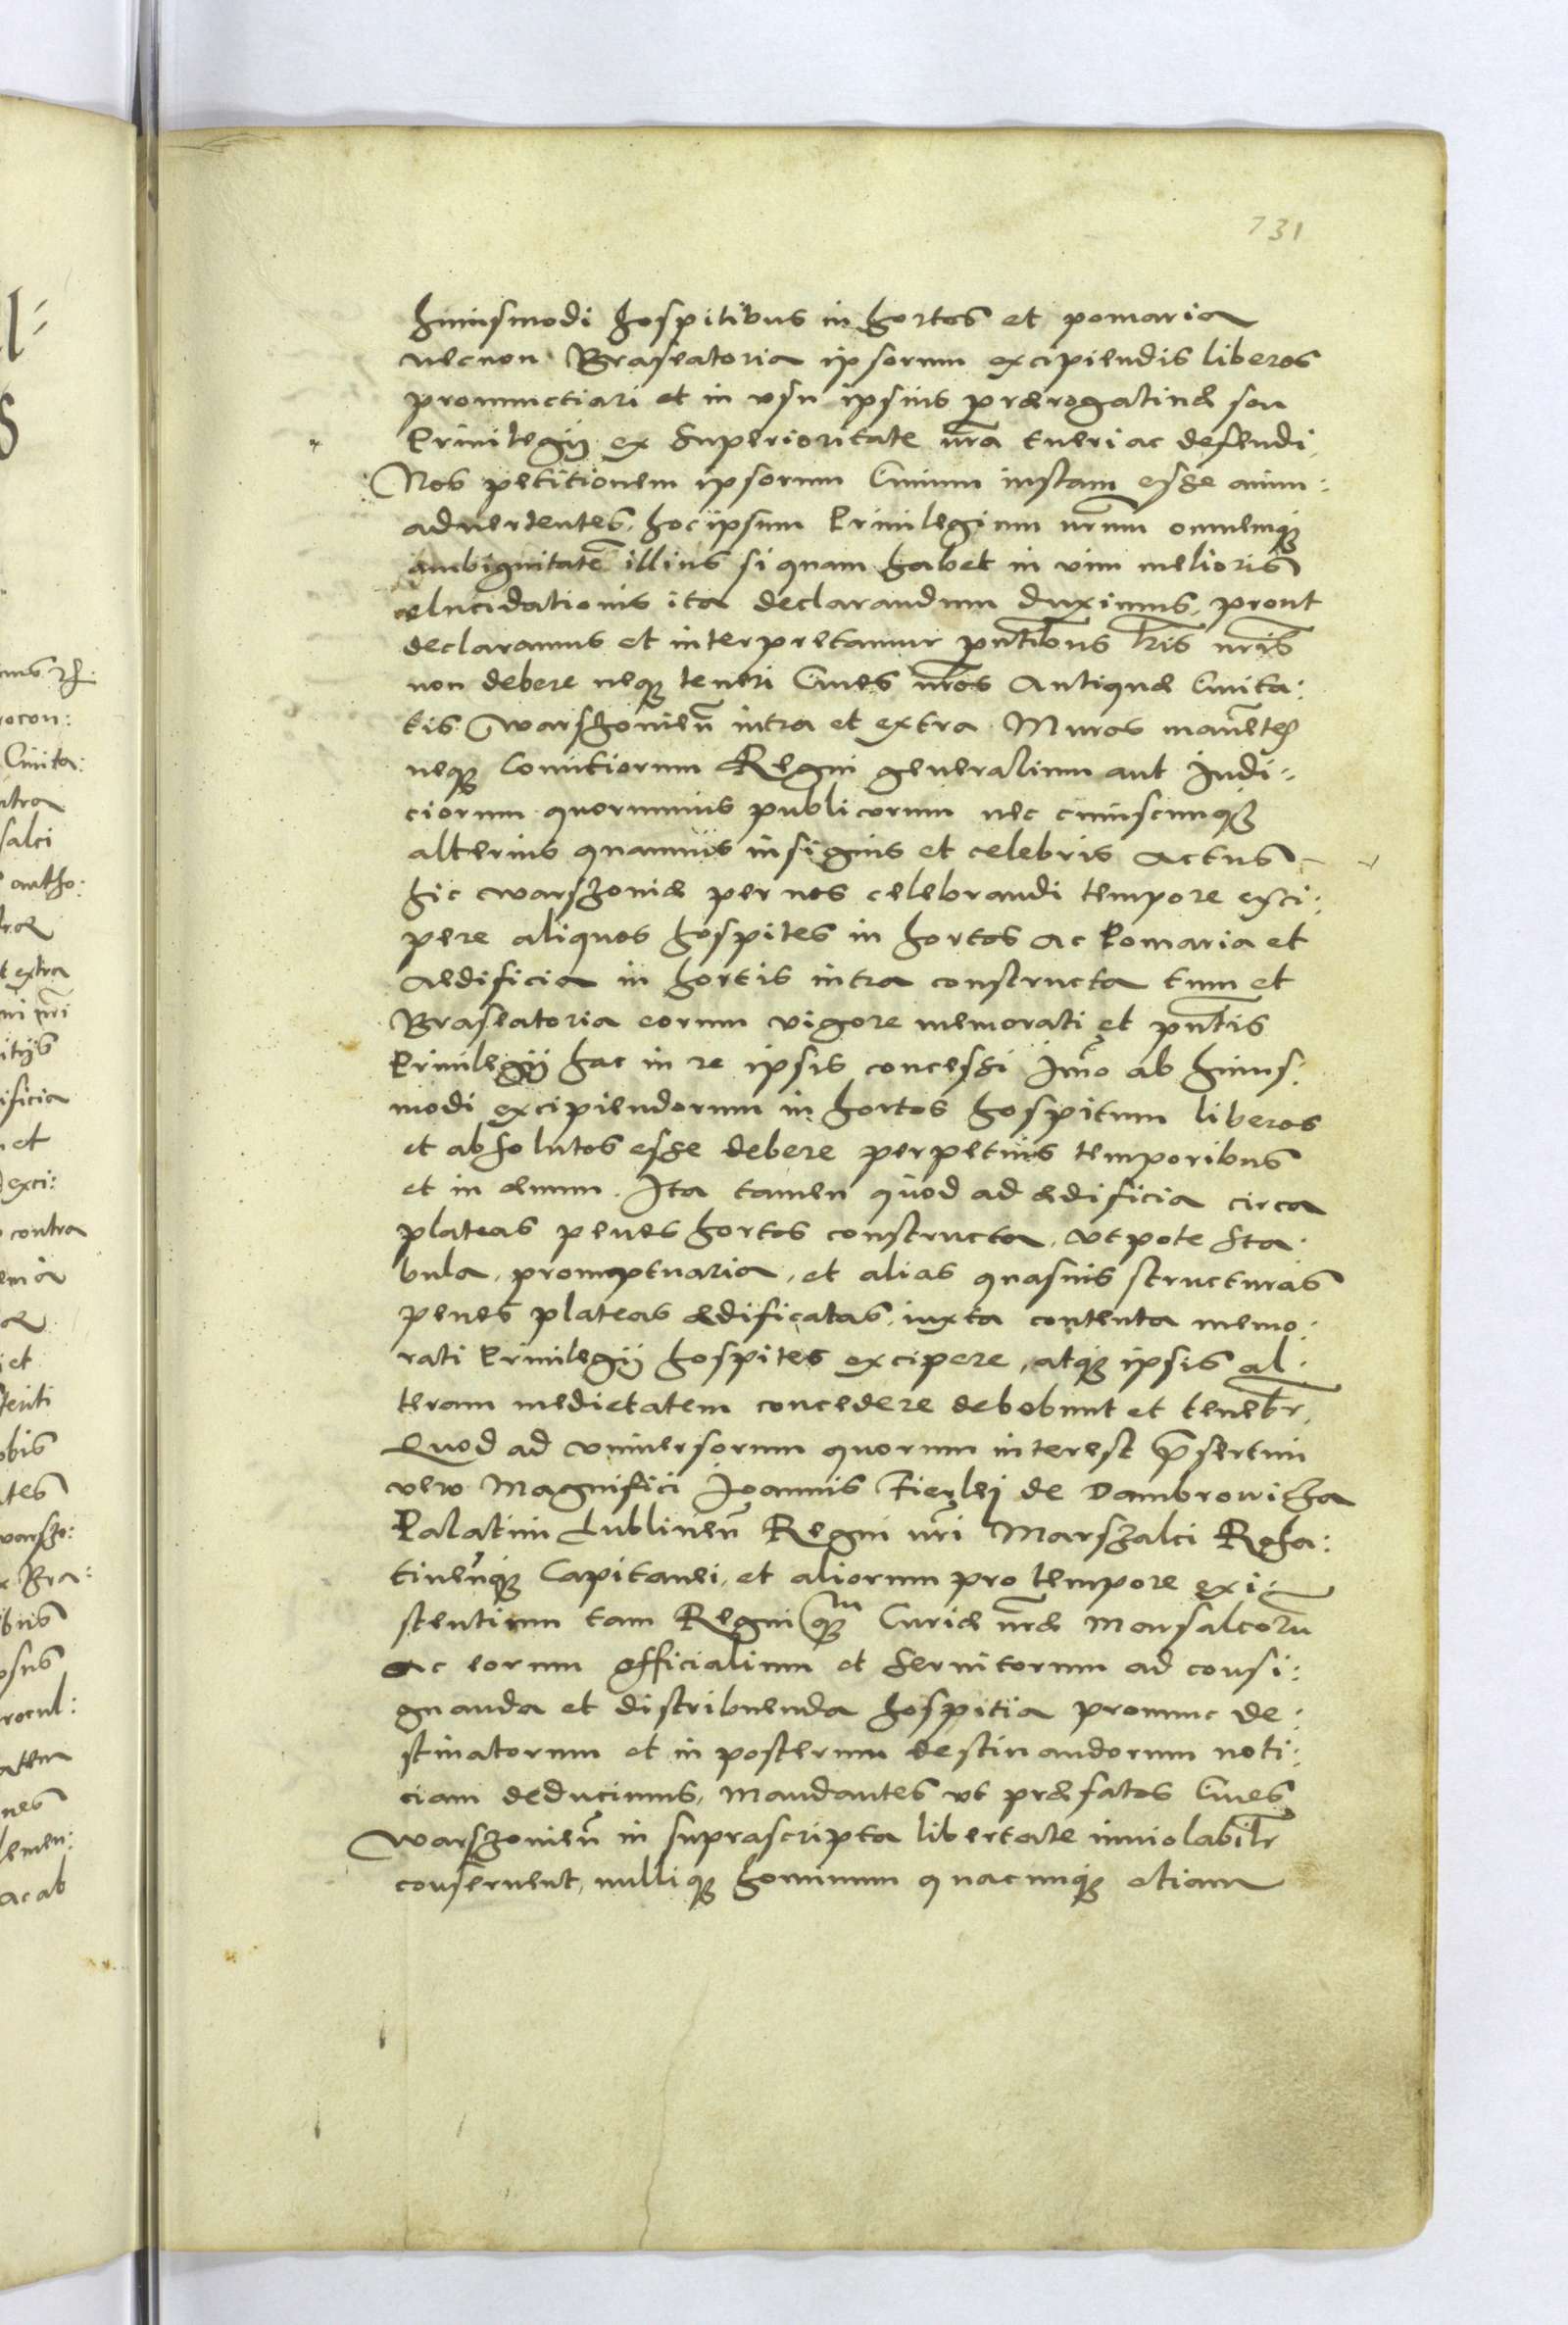 731
huiusmodi hospitibus in hortos et pomaria
necnon Braseatoria ipsorum excipiendis liberos
pronunctiari et in usu ipsius prærogatiuæ seu
Priuilegij ex Superioritate nr̃a tueri ac defendi,
Nos petitionem ipsorum Ciuium iustam esse anim:
aduertentes, hoc ipsum Priuilegium nr̃um omnemq;
ambiguitatẽ illius si quam habet in vim melioris
elucidationis ita declarandum duximus, prout
declaramus et interpretamur pn̄tibus lr̃is nr̃is
non debere neq; teneri Ciues nr̃os Antiquæ Ciuita:
tis Warszouieñ intra et extra Muros manẽtes
neq; Comitiorum Regni generalium aut Judi:
ciorum quorumuis publicorum nec cuiuscunq;
alterius quamuis insignis et celebris actus
hic Warszouiæ per nos celebrandi tempore exci:
pere aliquos hospites in hortos ac Pomaria et
Aedificia in hortis intra constructa tum et
Braseatoria eorum vigore memorati et pn̄tis
Priuilegij hac in re ipsis concessi Im̃o ab huius:
modi excipiendorum in hortos hospitum liberos
et absolutos esse debere perpetuis temporibus
et in æuum. Ita tamen quod ad ædificia circa
plateas penes hortos constructa, utpote sta:
bula, promptuaria, et alias quasuis structuras
penes plateas ædificatas, iuxta contenta memo:
rati Priuilegij hospites excipere, atq; ipsis al:
teram medietatem concedere debebunt et tenebr̃,
Quod ad vniuersorum quorum interest p̃sertim
vero Magnifici Joannis Fierlej de Dambrowicza
Palatini Lublineñ Regni nr̃i Marszalci Roha:
tineñq; Capitanei, et aliorum pro tempore exi:
stentium tam Regni q̃m Curiæ nr̃æ Marsalcorũ
ac eorum officialium et Seruitorum ad consi:
gnanda et distribuenda hospitia pronunc de:
stinatorum et in posterum destinandorum noti:
ciam deducimus, Mandantes ut præfatos Ciues
Warszouieñ in suprascripta libertate inuiolabilr̃
conseruent, nulliq; hominum quacunq; etiam